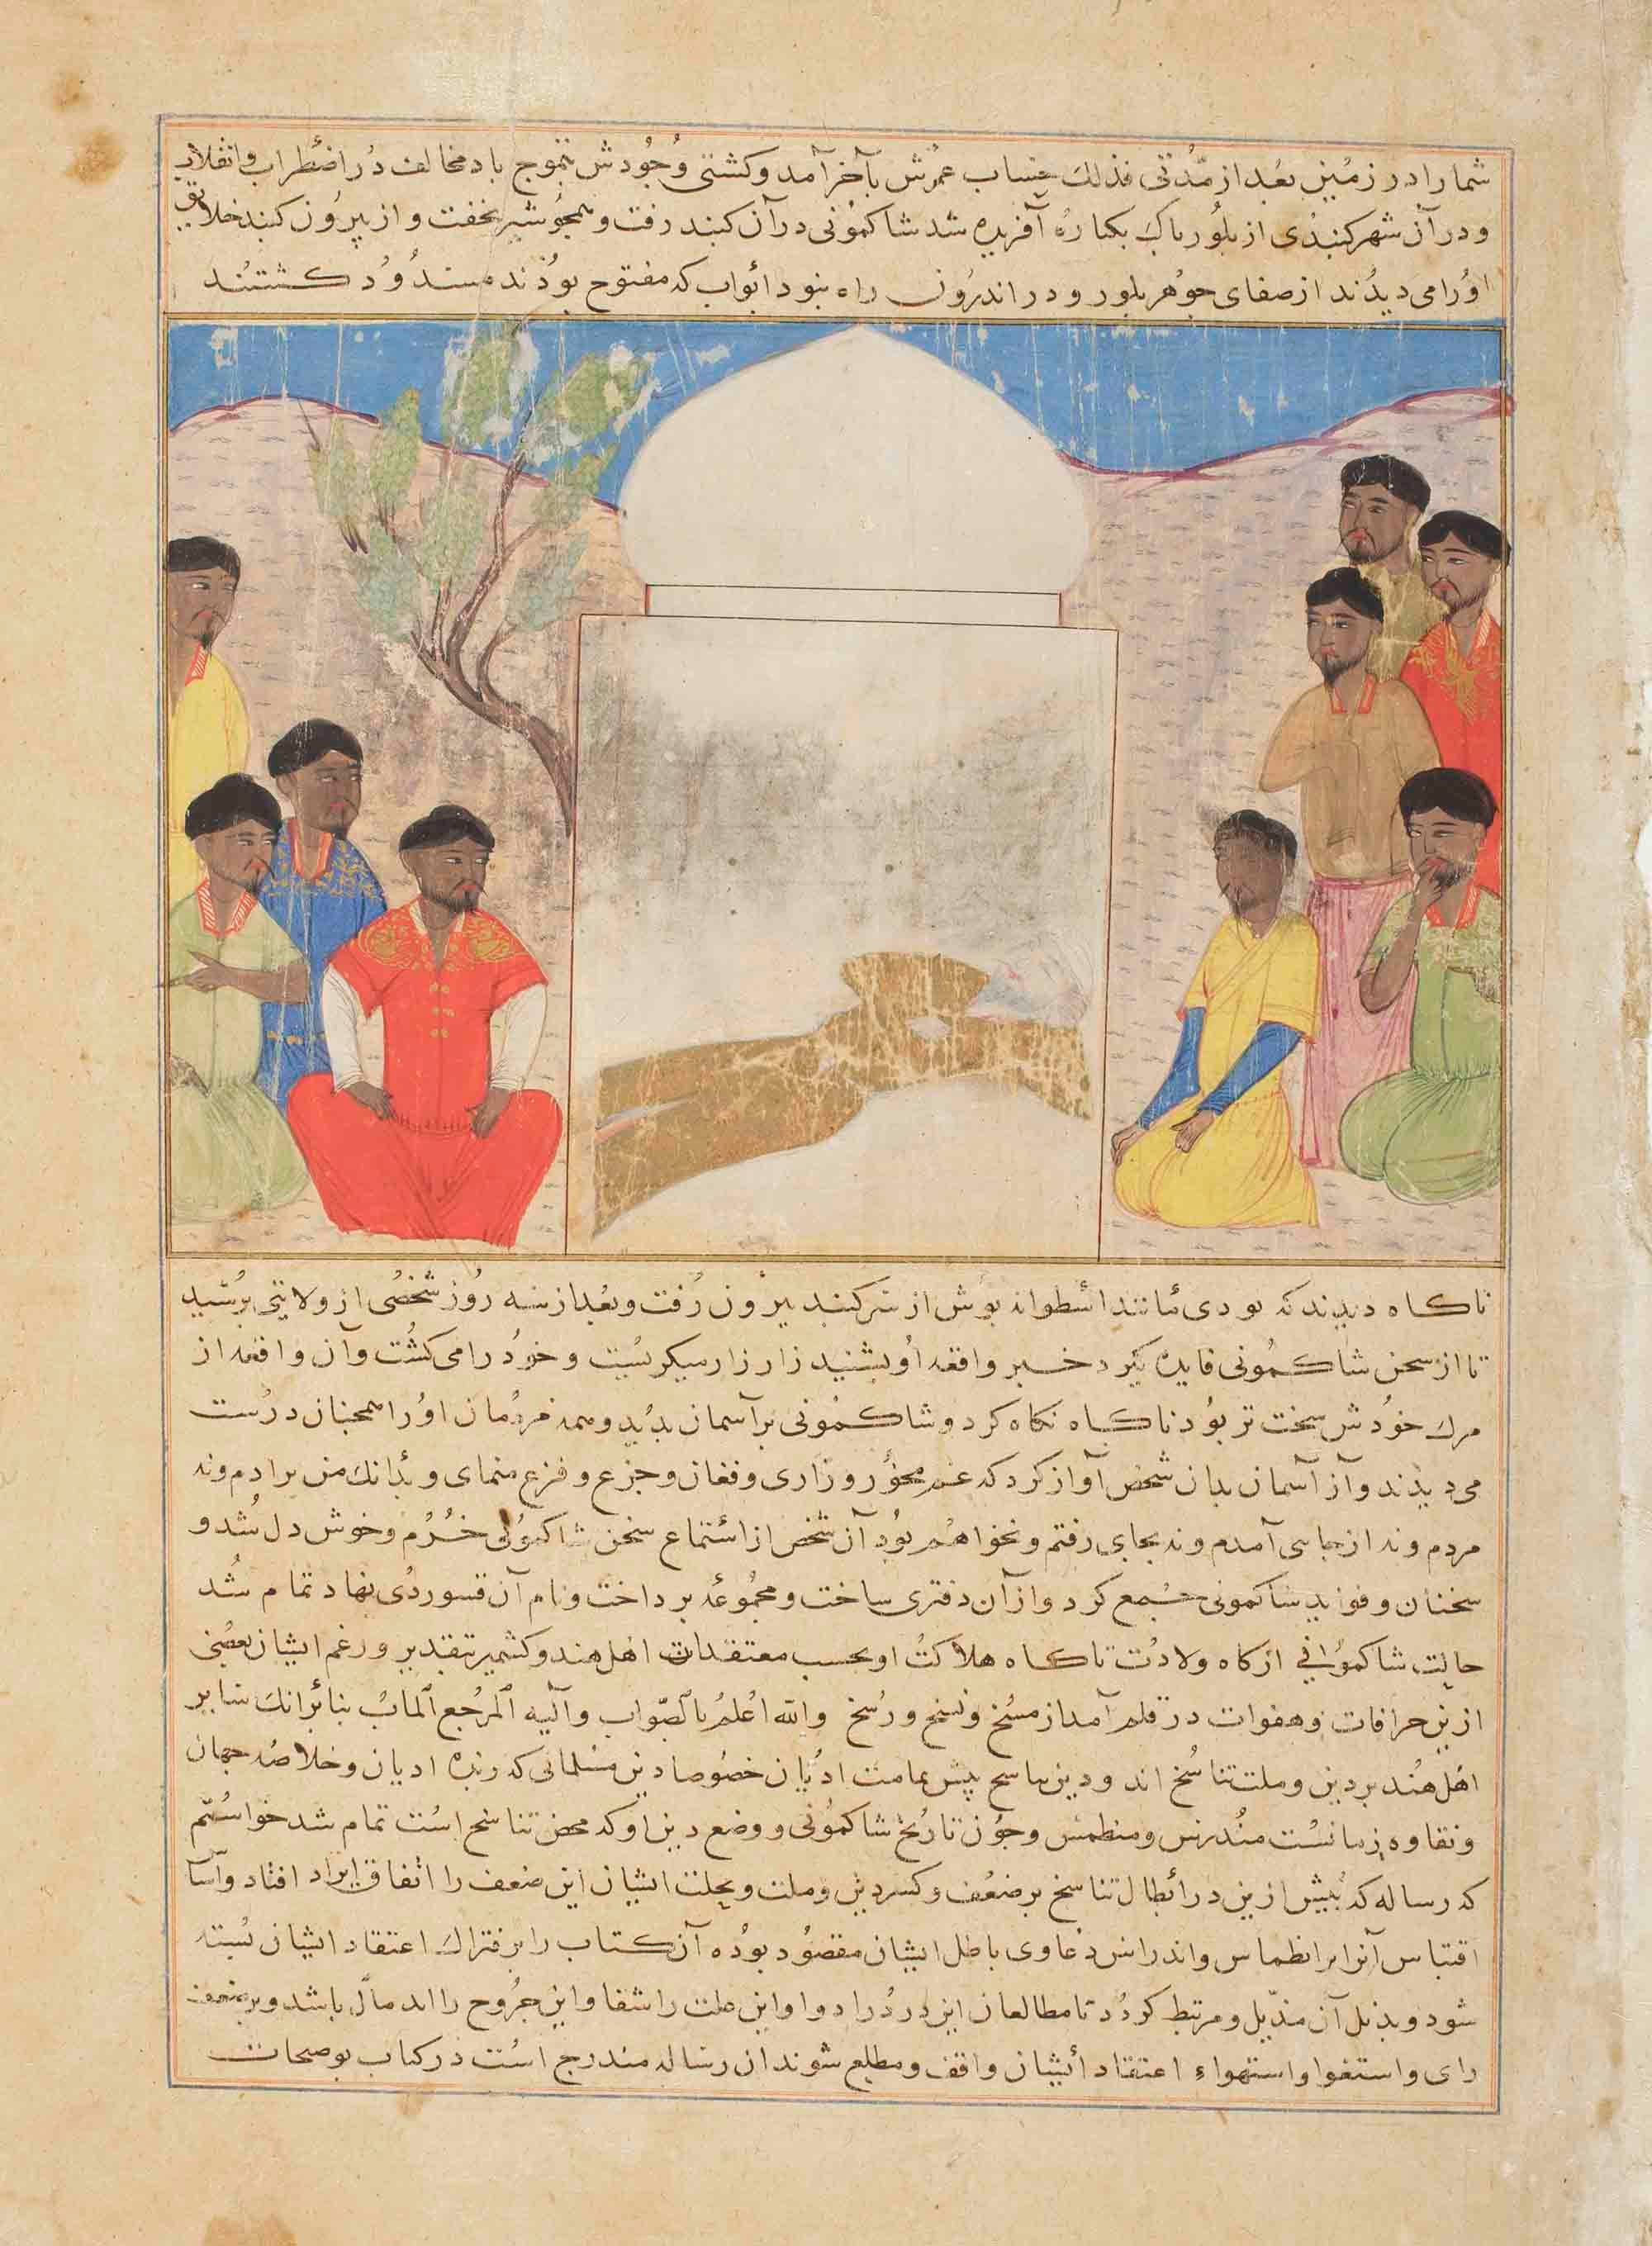 شما را در زمین بعد از مدتی فذلك حساب عمرش بآخر آمد و کشتی وجودش بتموج باد مخالف در اضطراب و انقلاب
و در آن شهر کنبذی از بلور پاك بکباره آفریده شد شاکمونی در آن کنبد رفت و همجو شیر بخفت و از بیرون کنبد خلایق
او را می دیدند از صفای جوهر بلور و در اندرون راه نبود ابواب که مفتوح بوذند مسدود کشتند
ناکاه دیدند که بودی مانند اسطوانه بوش از سر کنبد بیرون رفت و بعد از سه روز شخصی از ولایتی برسید
تا از سخن شاکمونی فایده کیرد خبر واقعه او بشنید زار زار میکریست و خود را می کشت و آن واقعه از
مرك خودش سخت تر بود ناکاه نکاه کرد و شاکمونی بر آسمان بدید و همه مردمان او را همجنان درست
می دیدند و از آسمان بدان شخص آواز کرد که غم مخور و زاری و فغان و جزع و فزع منمای و بدانك من نزادم و نه
مردم و نه از جایی آمدم و نه بجای رفتم و نخواهم بود آن شخص از استماع سخن شاکمونی خرم و خوش دل شد و
سخنان و فواید شاکمونی جمع کرد و از آن دفتری ساخت و مجموعه برداخت و نام آن قسوردی نهاد تمام شد
حالت شاکمونی از کاه ولادت تا کاه هلاکت او بحسب معتقدات اهل هند و کشمیر بتقدیر و رغم ایشان بعضی
ازین خرافات و هفوات در قلم آمد از مسخ و نسخ و رسخ والله اعلم بالصواب والیه المرجع المآب بنا بر انك سایر
اهل هند بر دین و ملت تناسخ اند و دین تناسخ پیش عامت ادیان خصوصا دین مسلمانی که زبده ادیان و خلاصه جهان
و نقاوه زمانست مندرس و منطمس و جون تاریخ شاکمونی و وضع دین او که محض تناسخ است تمام شد خواستم
که رساله که بیش ازین در ابطال تناسخ بر ضعف و کسر دین و ملت و نحلت ایشان این ضعیف را اتفاق ایراد افتاد و اساس
اقتباس آنرا بر انطماس و اندراس دعاوی باطل ایشان مقصود بوده آن کتاب را بر فتراك اعتقاد ایشان بسته
شود و بذیل آن مذیل و مرتبط کردد تا مطالعان این درد را دوا و این علت را شفا و این جروح را اند مال باشد و بر ضعف
رای و استغوا و استهواء اعتقاد ایشان واقف و مطلع شوند ان رساله مندرج است در کتاب توضیحات